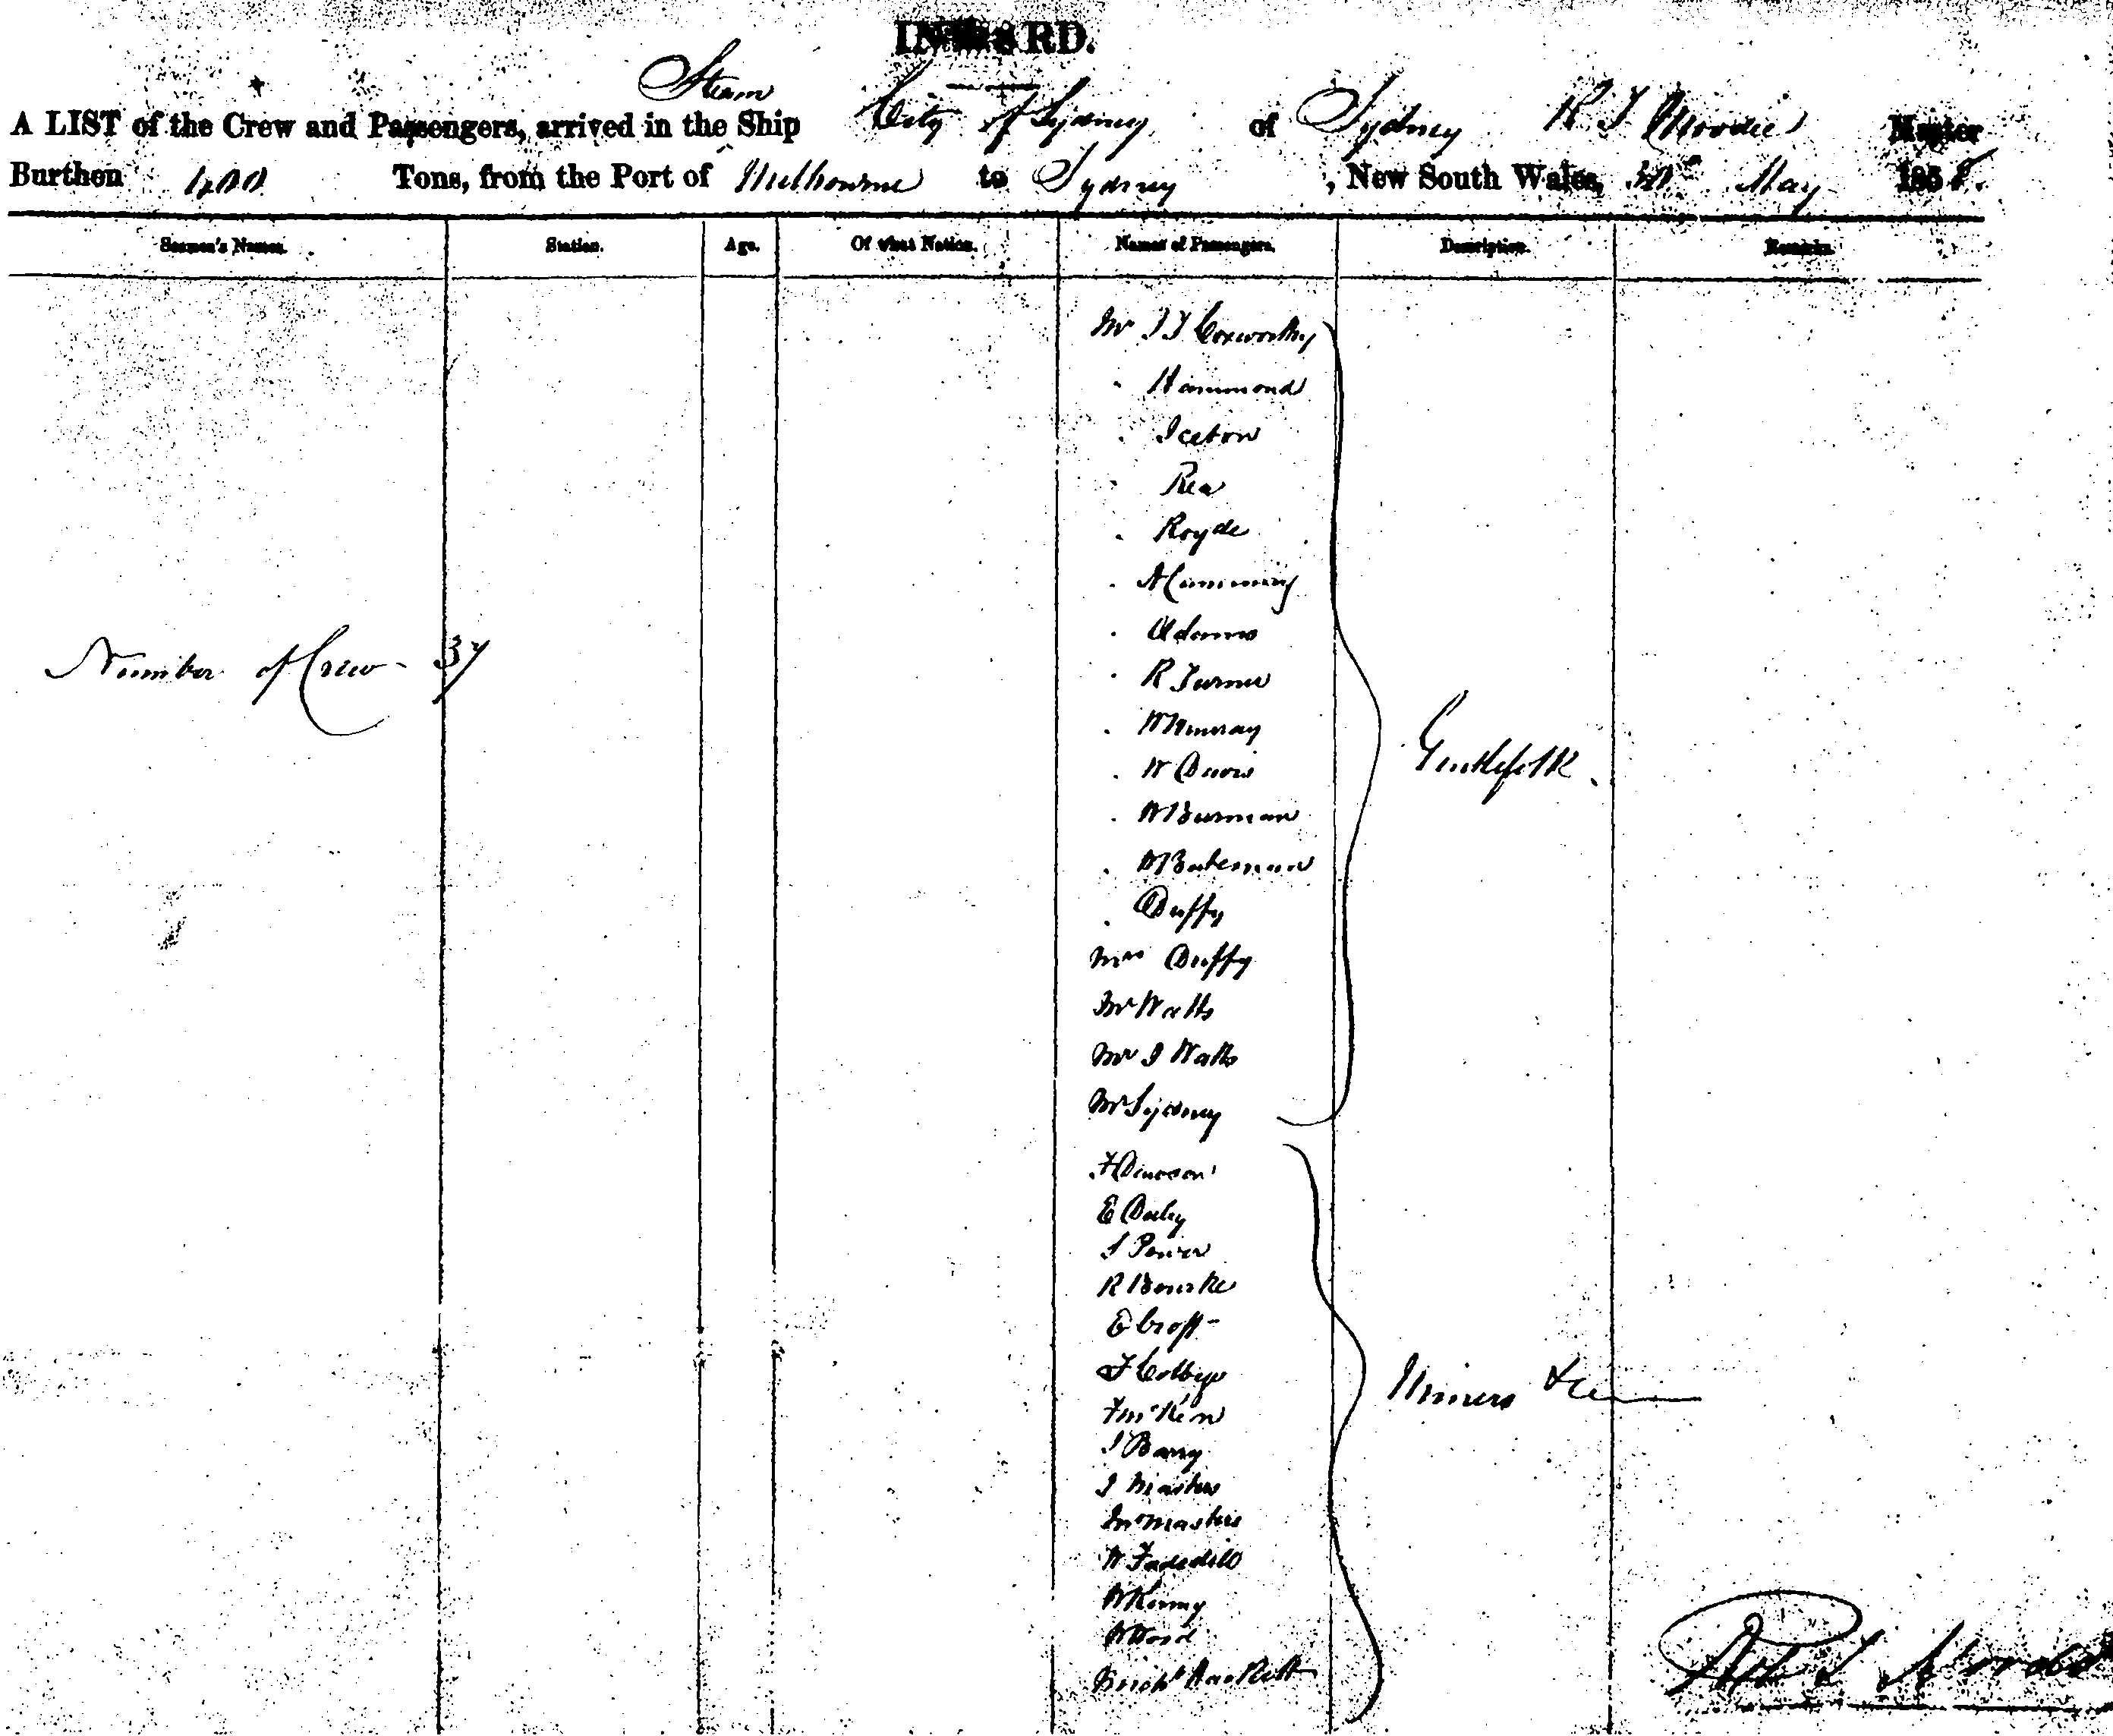 INWARD.
Steam
A LIST of the Crew and Passengers, arrived in the Ship City of Sydney of Sydney R T Moodie Master
Burthen 400 Tons, from the Port of Melbourne to Sydney, New South Wales, 30th May 1858.
Seamen's Names. Station. Age. Of what Nation. Names of Passengers. Description. Remarks.
Mr J J Coxworthy
" Hammond
" Iceton
" Rea
" Royde
" A Cumming
" Adams
Number of Crew - 37
" R Turner
" W Murray
Gentlefolk.
" W Davis
" W Burman
" W Bateman
" Duffy
Mrs Duffy
Mr Watts
Mr J Watts
Mr Sydney
F Dawson
E Daley
J Power
R Bourke
E Croft
F Colbye
Miners &c
F McKen
J Barry
J Masters
Mrs Masters
W
W Kenny
W Wood
Hackett
Robt T Moodie